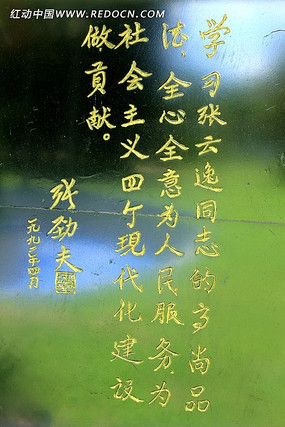 红动中国 WWW.REDOCN.COM
学习张云逸同志的高尚品
法，全心全意为人民服务，为
社会主义四个现代化建设
做贡献。
张劲夫
一九九二年四月